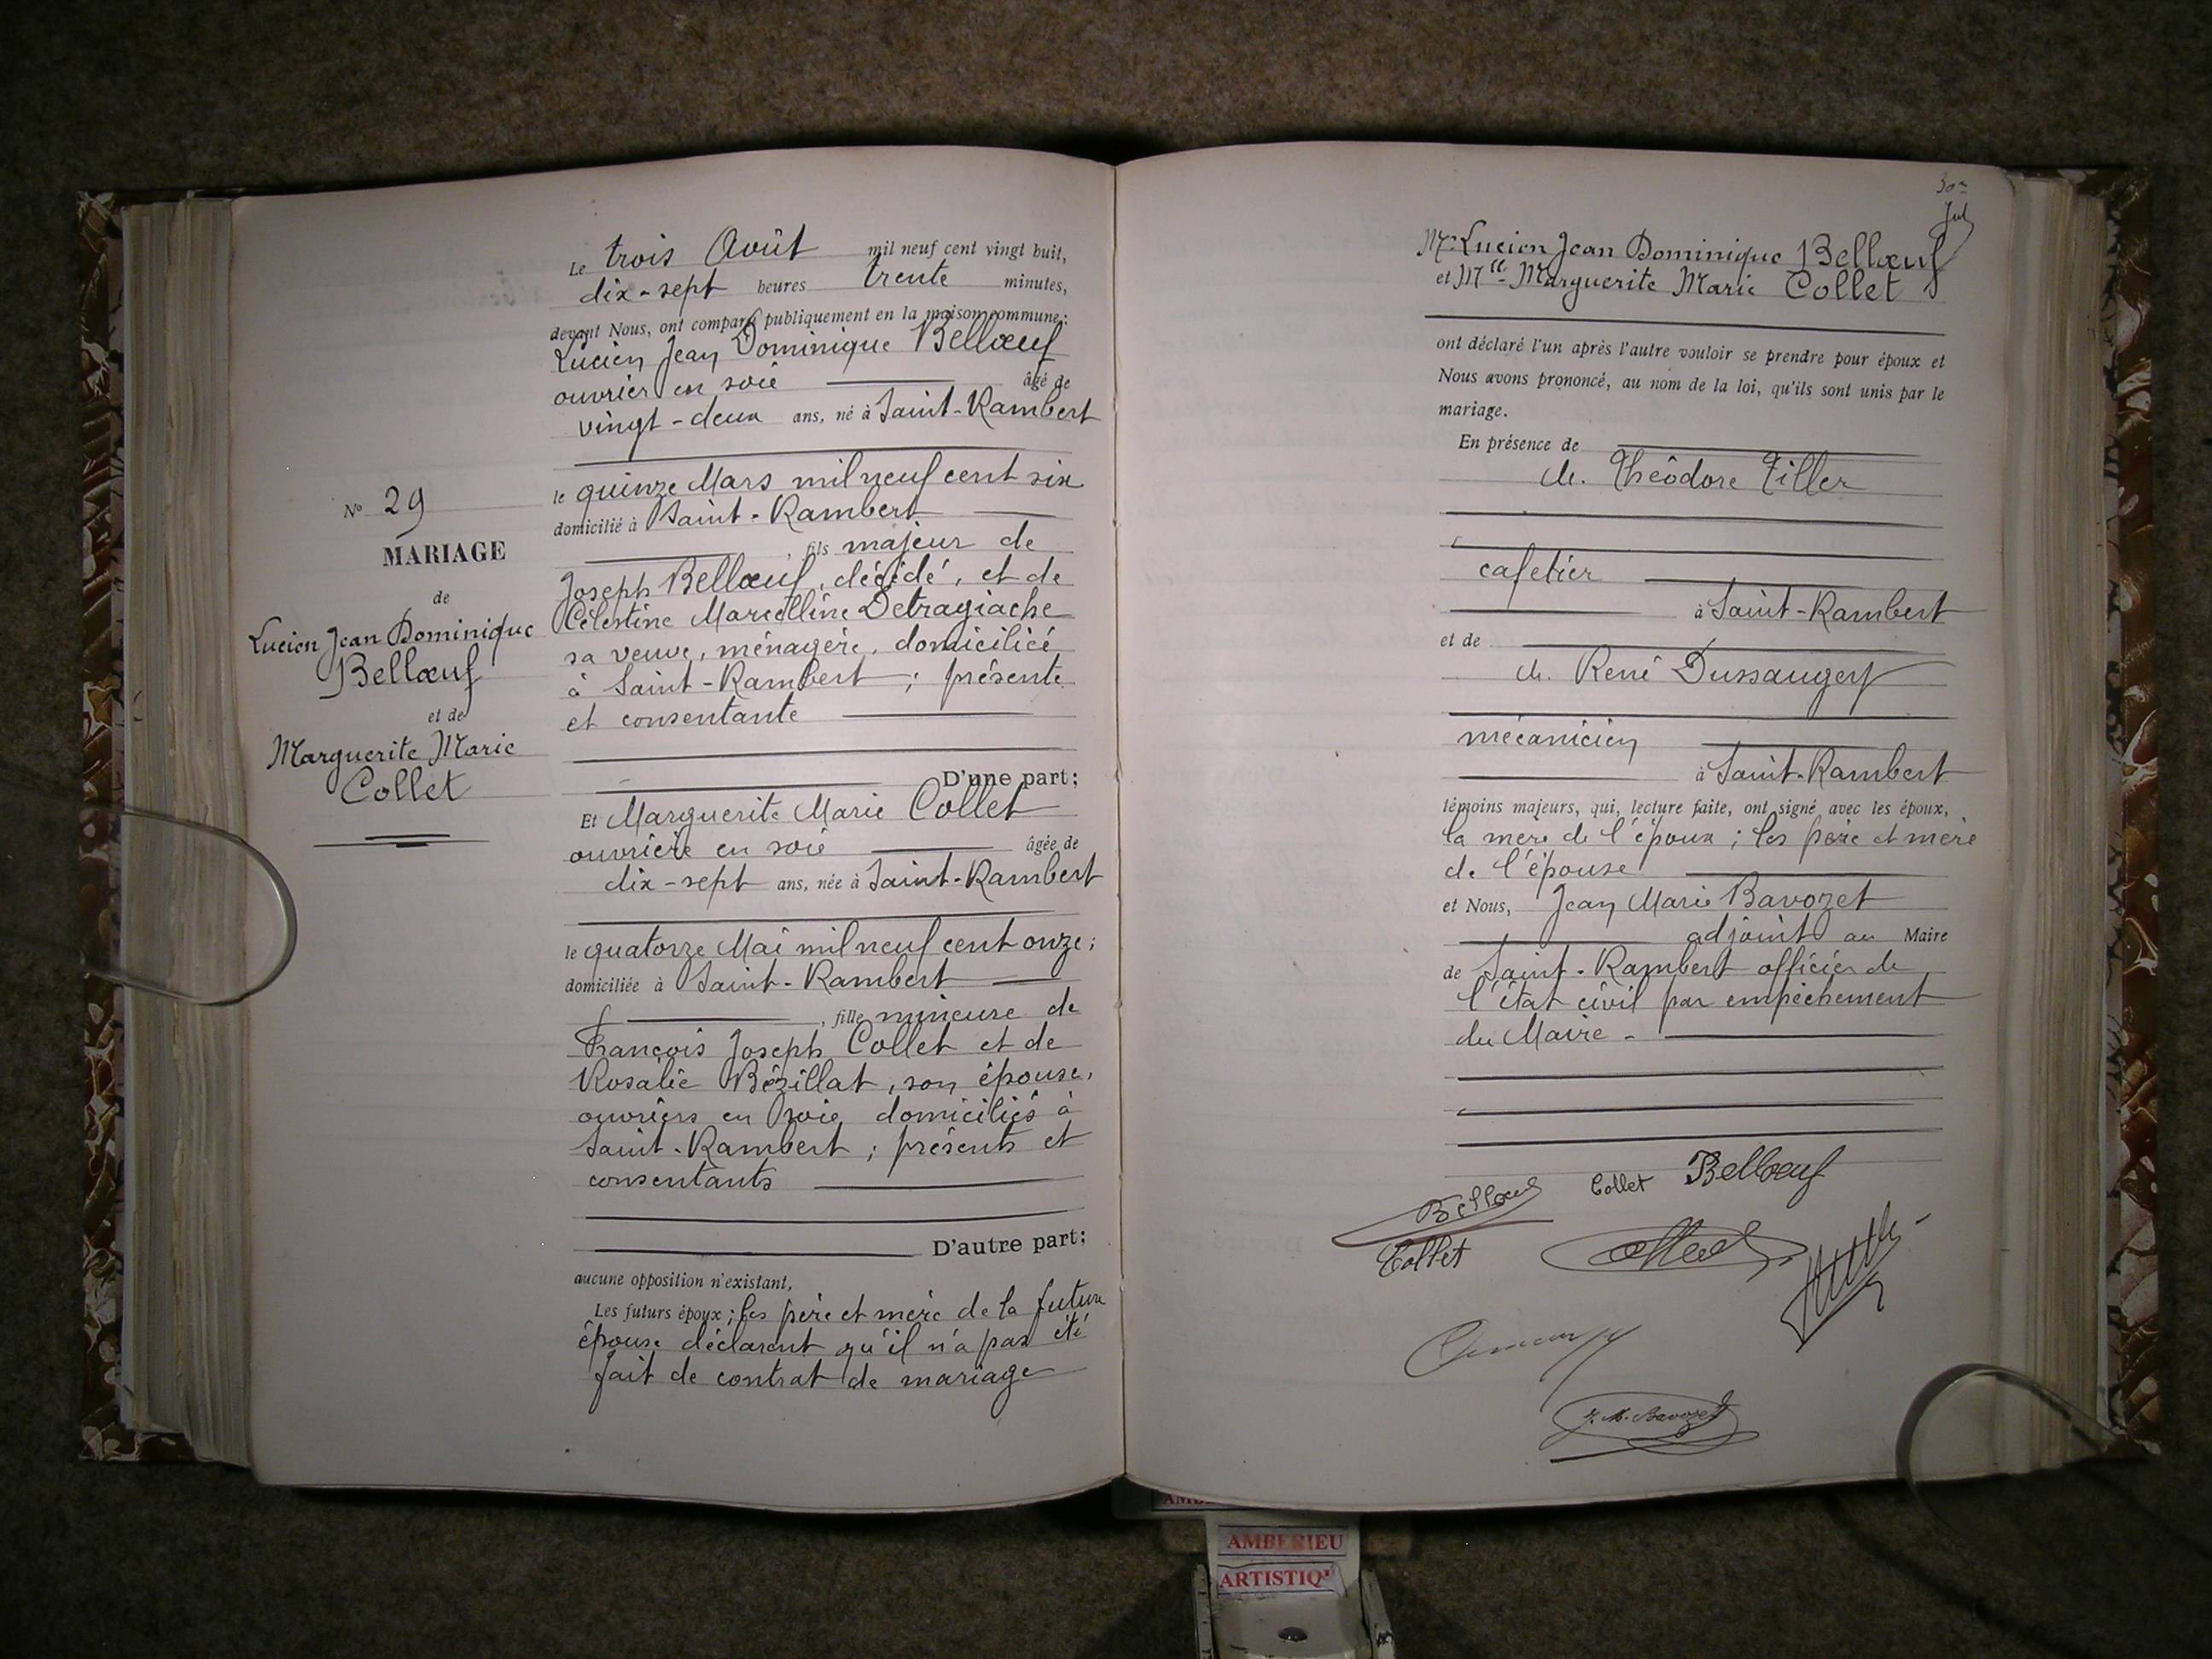 Le trois Août mil neuf cent vingt huit,
dix-sept heures trente minutes,
devant Nous, ont comparu publiquement en la maison commune:
Lucien Jean Dominique Bellœuf
ouvrier en soie âgé de
vingt-deux ans, né à Saint-Rambert
le quinze Mars mil neuf cent six
domicilié à Saint-Rambert
, fils majeur de
Joseph Bellœuf, décédé, et de
Célestine Marcelline Detragiache
sa veuve, ménagère, domiciliée
à Saint-Rambert ; présente
et consentante
D'une part;
Et Marguerite Marie Collet
ouvrière en soie âgée de
dix-sept ans, née à Saint-Rambert
le quatorze Mai mil neuf cent onze;
domiciliée à Saint-Rambert
, fille mineure de
François Joseph Collet et de
Rosalie Bézillat, son épouse,
ouvriers en soie domiciliés à
Saint-Rambert ; présents et
consentants
D'autre part;
aucune opposition n'existant,
Les futurs époux ; les père et mère de la future
épouse déclarent qu'il n'a pas été
fait de contrat de mariage
N° 29
MARIAGE
de
Lucien Jean Dominique
Bellœuf
et de
Marguerite Marie
Collet
Mr Lucien Jean Dominique Bellœuf
et Mlle Marguerite Marie Collet
ont déclaré l'un après l'autre vouloir se prendre pour époux et
Nous avons prononcé, au nom de la loi, qu'ils sont unis par le
mariage.
En présence de
M. Théodore Tiller
cafetier
à Saint-Rambert
et de
M. René Dussaugey
mécanicien
à Saint-Rambert
témoins majeurs, qui, lecture faite, ont signé avec les époux,
la mère de l'époux ; les père et mère
de l'épouse
et Nous, Jean Marie Bavozet
adjoint au Maire
de Saint-Rambert officier de
l'état civil par empêchement
du Maire -
Bellœuf Collet Bellœuf
Collet
J. M. Bavozet
AMBERIEU
ARTISTIQ